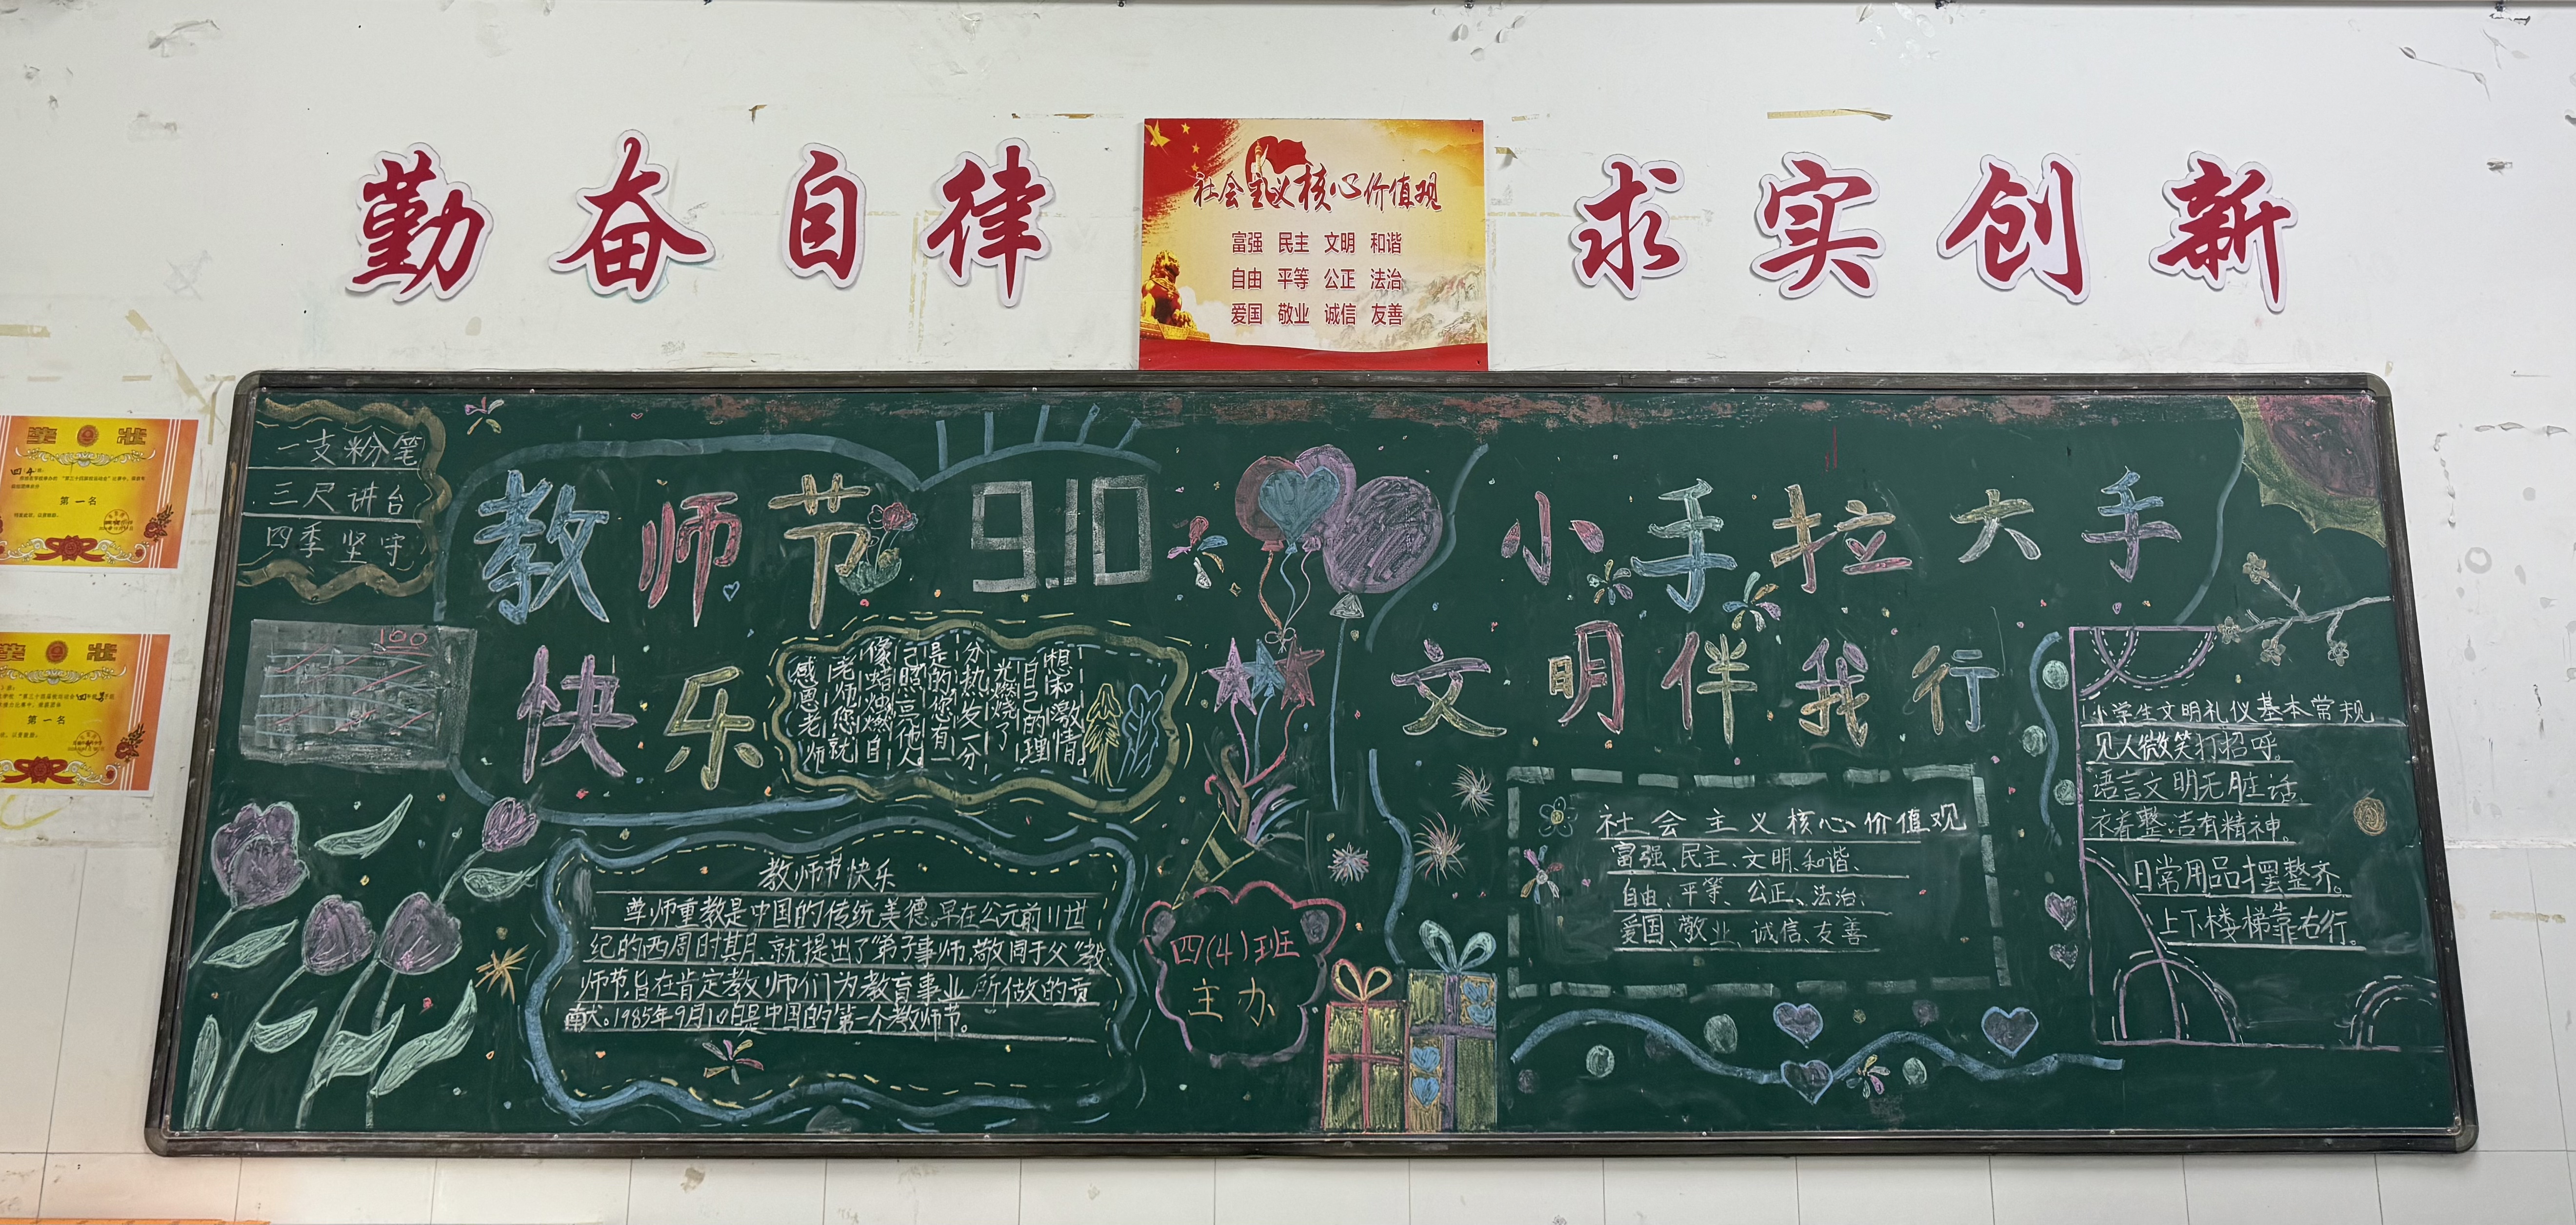 勤奋自律
社会主义核心价值观
富强 民主 文明 和谐
自由 平等 公正 法治
爱国 敬业 诚信 友善
求实创新
奖状
第一名
奖状
第一名
一支粉笔
三尺讲台
四季坚守
100
教师节
9.10
快乐
感恩老师
老师您就
像蜡烛燃自
己照亮他人。
是的您有一
分热发一分
光燃烧了
自己的理
想和激情。
教师节快乐
尊师重教是中国的传统美德。早在公元前11世
纪的西周时其月,就提出了“弟子事师,敬同于父”教
师节,旨在肯定教师们为教育事业所做的贡
献。1985年9月10日是中国的第一个教师节。
四(4)班
主办
小手拉大手
文明伴我行
社会主义核心价值观
富强、民主、文明、和谐、
自由、平等、公正、法治、
爱国、敬业、诚信、友善
小学生文明礼仪基本常规
见人微笑打招呼。
语言文明无脏话
衣着整洁有精神。
日常用品摆整齐。
上下楼梯靠右行。